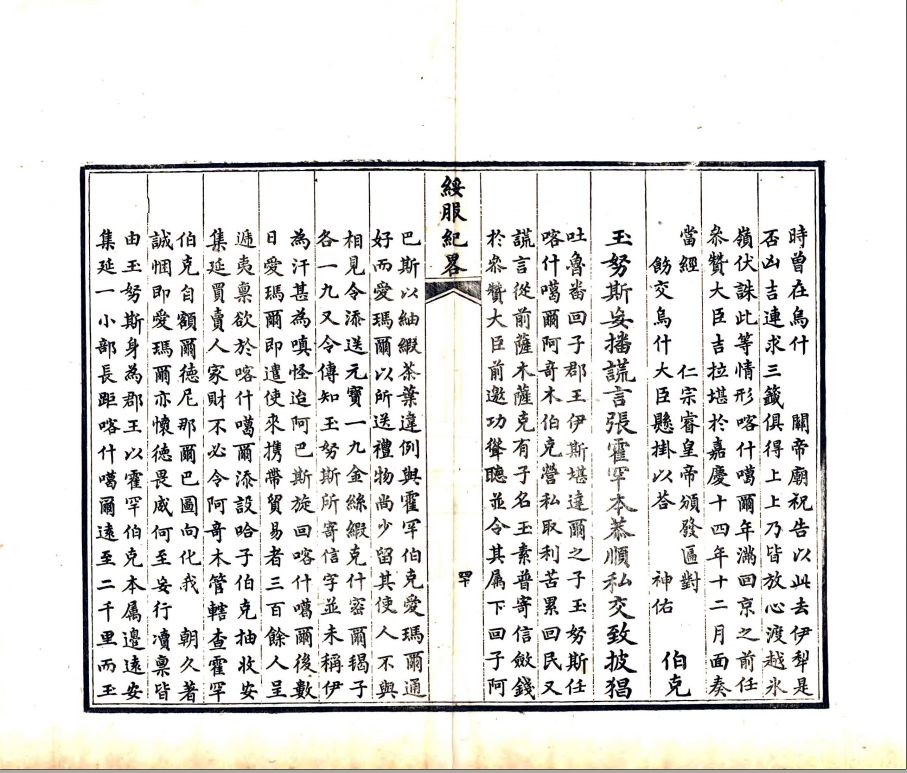 時曾在烏什　關帝廟祝告以此去伊犁是
否凶吉連求三籤俱得上上乃皆放心渡越氷
嶺伏誅此等情形喀什噶爾年滿回京之前任
叅贊大臣吉拉堪於嘉慶十四年十二月面奏
當經　仁宗睿皇帝頒發匾對
飭交烏什大臣懸掛以荅　神佑　伯克
玉努斯妄播謊言張霍罕本恭順私交致披猖
吐魯番回子郡王伊斯堪達爾之子玉努斯任
喀什噶爾阿奇木伯克營私取利苦累回民又
謊言從前薩木薩克有子名玉素普寄信斂錢
於叅贊大臣前邀功聳聽並令其属下回子阿
綏服紀畧
罕
巴斯以紬緞茶葉違例與霍罕伯克愛瑪爾通
好而愛瑪爾以所送禮物尚少留其使人不與
相見令添送元寶一九金絲緞克什密爾䅥子
各一九又令傳知玉努斯所寄信字並未稱伊
為汗甚為嗔怪迨阿巴斯旋回喀什噶爾後數
日愛瑪爾即遣使來携帶貿易者三百餘人呈
遞夷稟欲於喀什噶爾添設哈子伯克抽收安
集延買賣人家財不必令阿奇木管轄查霍罕
伯克自額爾德尼那爾巴圖向化我　朝久著
誠悃即愛瑪爾亦懷德畏威何至妄行凟稟皆
由玉努斯身為郡王以霍罕伯克本属邊遠安
集延一小部長距喀什噶爾遠至二千里而玉